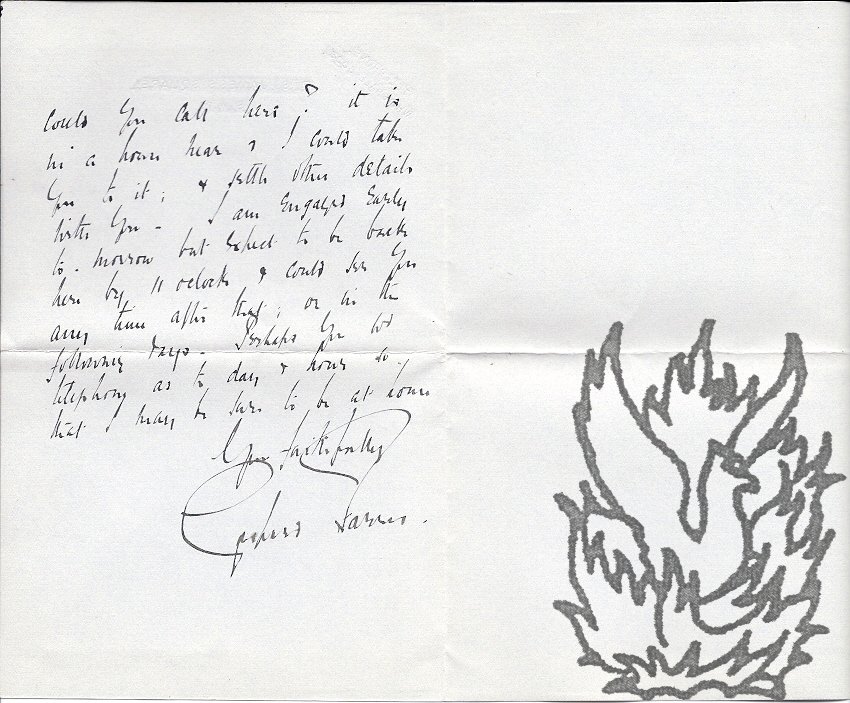 could you call here? it is
in a house near & I could take
you to it; & settle other details
with you - I am engaged early
to-morrow but expect to be back
here by 11 oclock & could see you
any time after that; or in the
following days - Perhaps you wd
telephone as to day & hour so
that I may be sure to be at home
Yrs faithfully